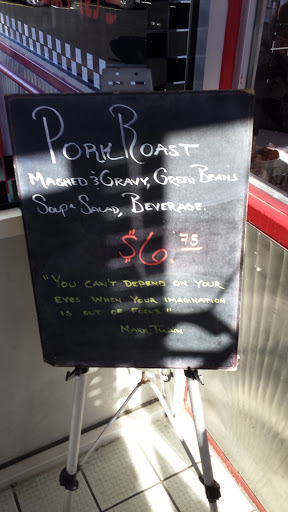 PORK ROAST
MASHED & GRAVY, GREEN BEANS
SOUP & SALAD, BEVERAGE.
$6.75
"YOU CAN'T DEPEND ON YOUR
EYES WHEN YOUR IMAGINATION
IS OUT OF FOCUS."
MARK TWAIN